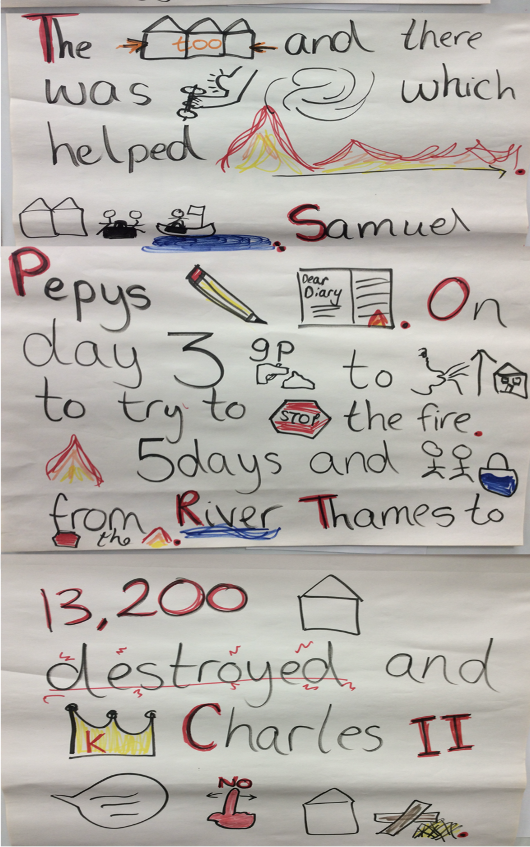 The too and there
was which
helped .
. Samuel
Pepys Dear Diary . On
day 3 gp to
to try to STOP the fire.
5days and
from River Thames to
the .
13,200
destroyed and
K Charles II
NO .